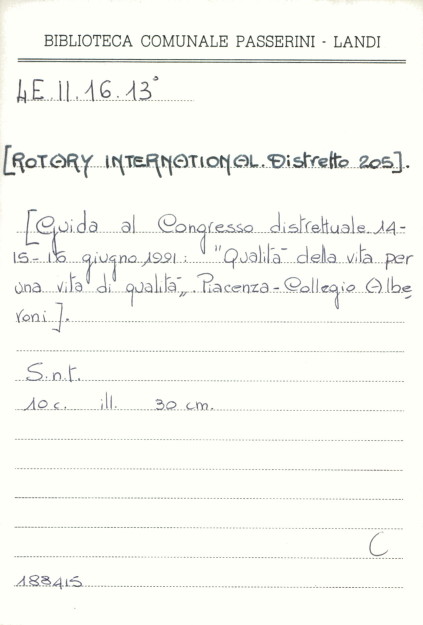 BIBLIOTECA COMUNALE PASSERINI - LANDI
4E.II.16.13°
[ROTARY INTERNATIONAL. Distretto 205].
[Guida al Congresso distrettuale. 14-
15-16 giugno 1991: "Qualità della vita per
una vita di qualità„. Piacenza - Collegio Albe
roni].
S.n.t.
10 c. ill. 30 cm.
C
183415